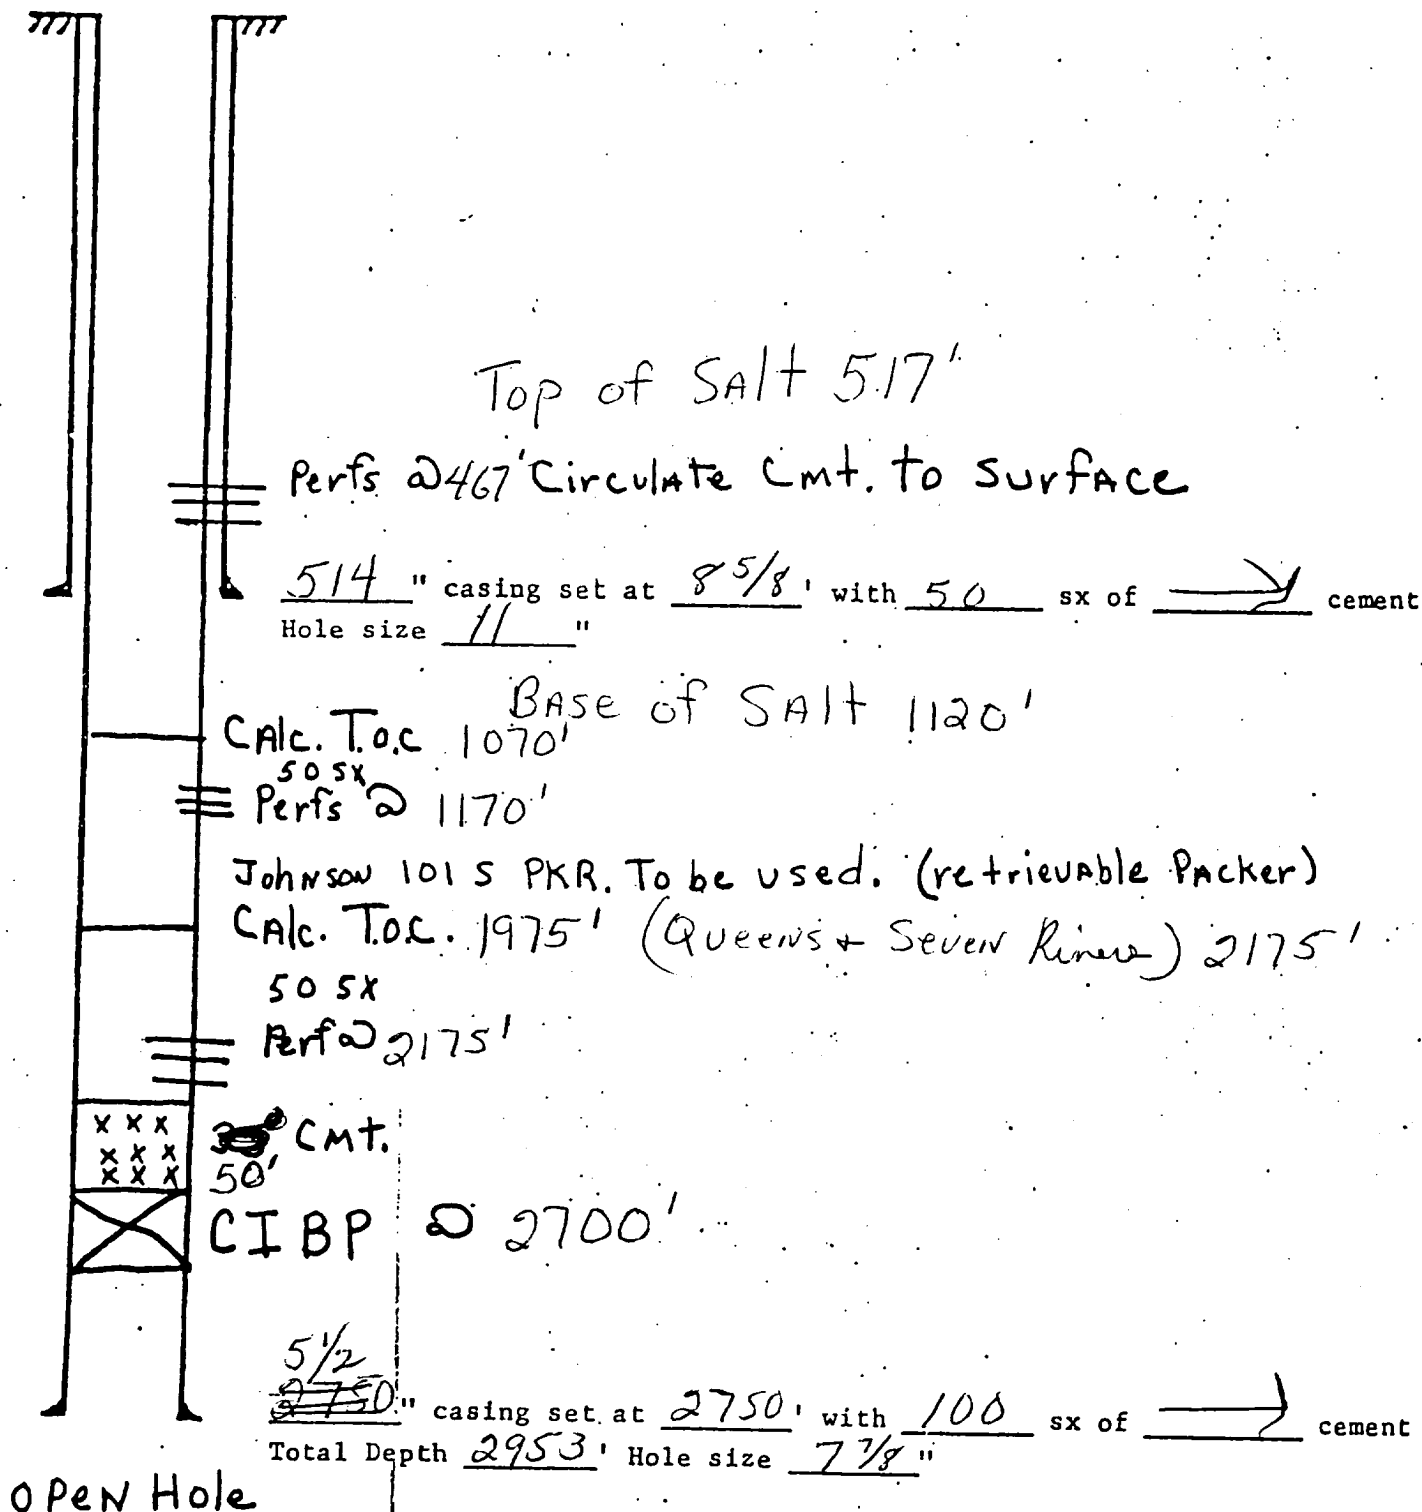 Top of SAlt 517'
Perfs @ 467' Circulate Cmt. to Surface
514 " casing set at 8 5/8 ' with 50 sx of cement
Hole size 11 "
BAse of SAlt 1120'
CAlc. T.O.C 1070'
50 sx
Perfs @ 1170'
Johnson 101 S PKR. To be used. (retrievable Packer)
CAlc. T.O.C. 1975' (Queens + Seven Rivers) 2175'
50 sx
Perf @ 2175'
x x x
x x x
x x x
Cmt.
50'
CIBP @ 2700'
5 1/2
2750 " casing set at 2750 ' with 100 sx of cement
Total Depth 2953 ' Hole size 7 7/8 "
OPEN Hole